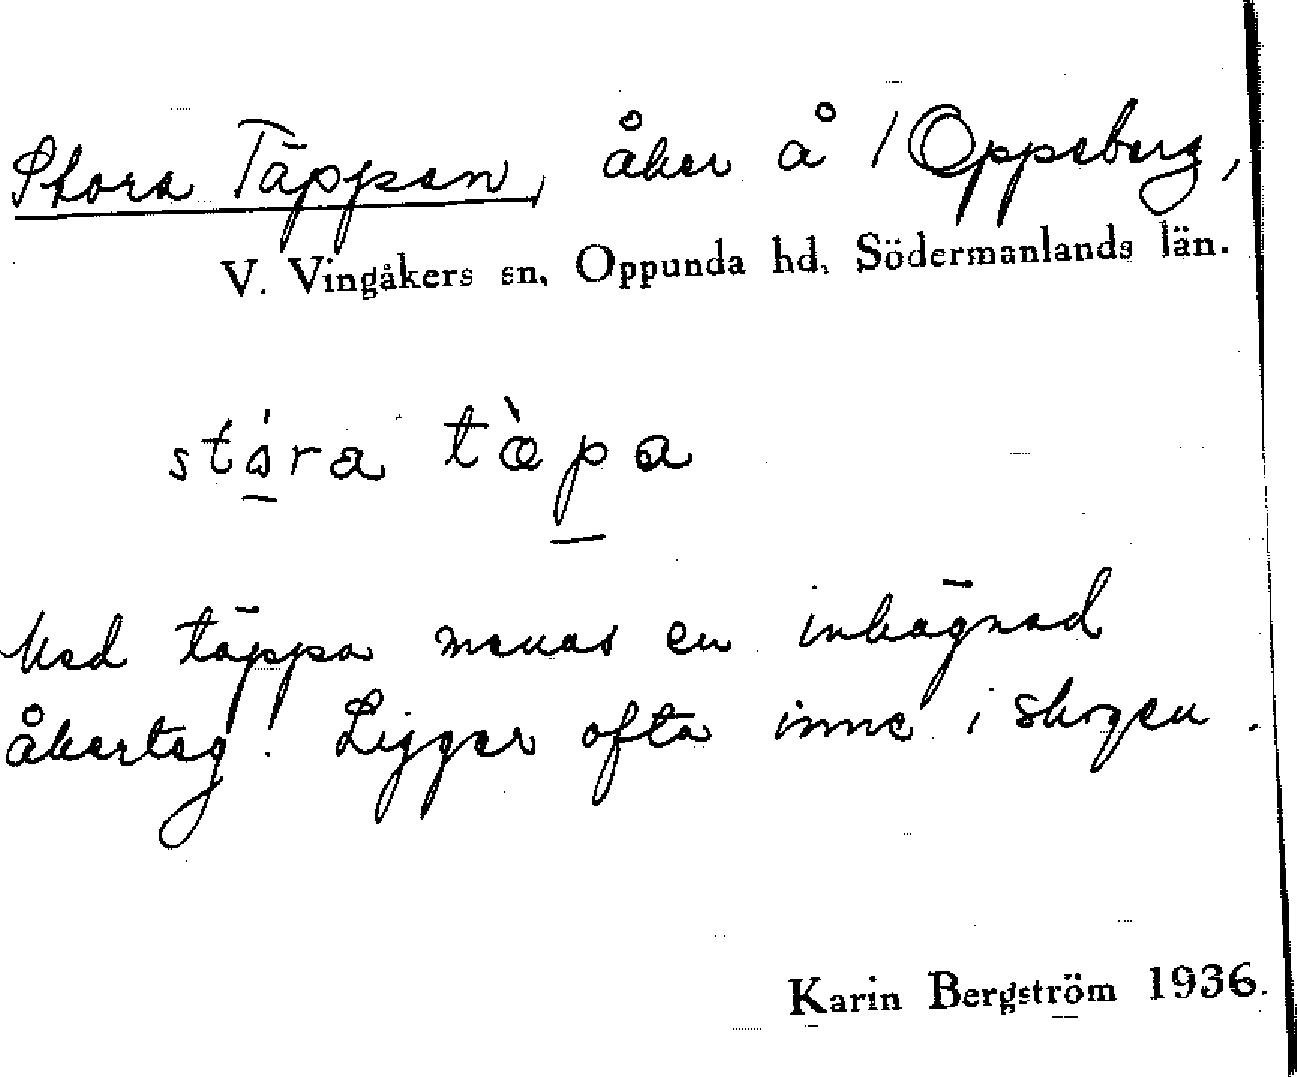 Stora Täppan, åker å 1 Oppeberg,
V. Vingåkers sn, Oppunda hd, Södermanlands län.
stó̠ra tæ̀p̠a
Med täppa menas en inhägnad
åkerteg. Ligger ofta inne i skogen.
Karin Bergström 1936.